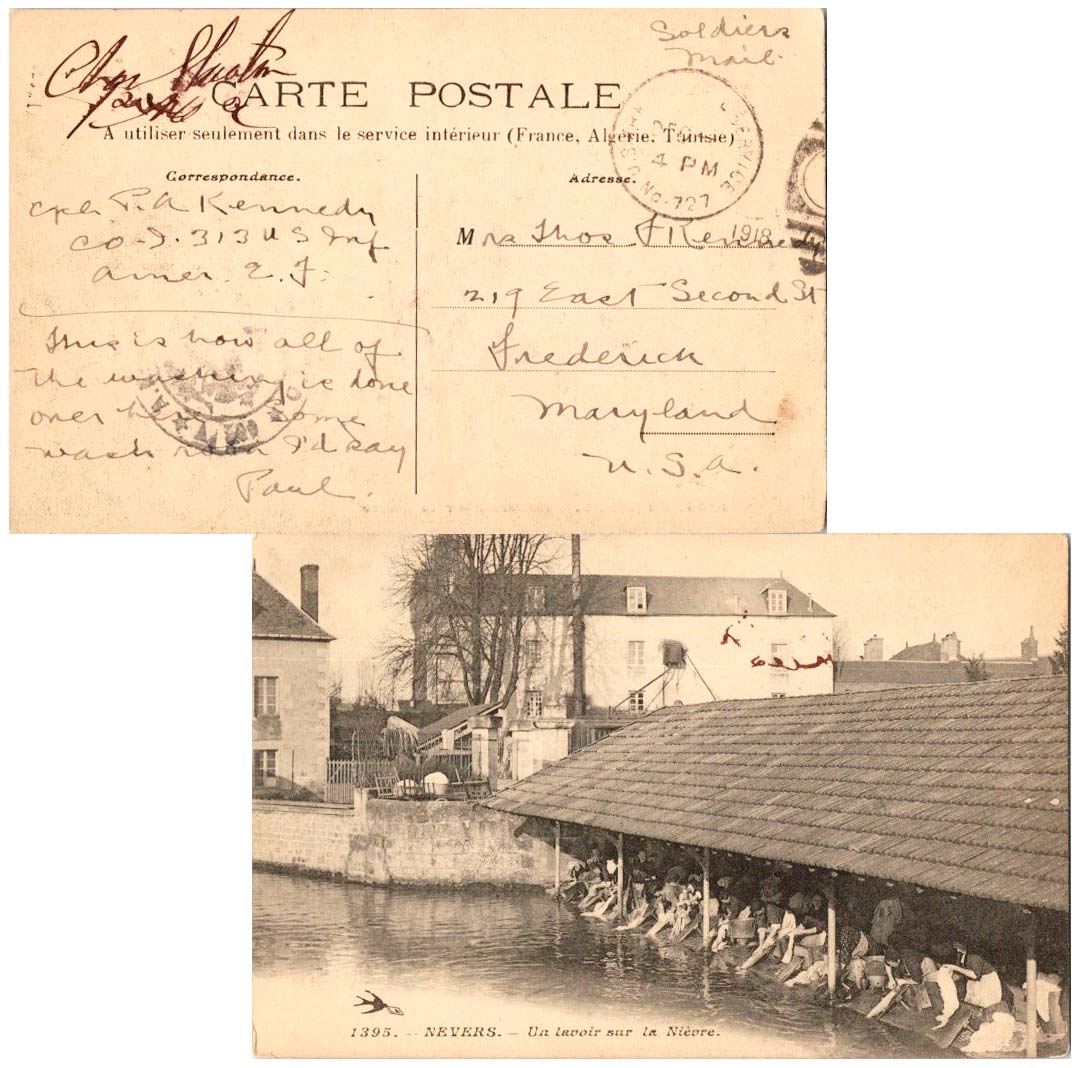 Soldiers
Mail.
CARTE POSTALE
A utiliser seulement dans le service intérieur (France, Algérie, Tunisie)
SERVICE
4 PM
No. 727
1918
Correspondance.
Adresse.
P. A Kennedy
Co. I. 313 U S Inf
Amer. E. F.
This is how all of
the washing is done
over here Some
wash room I'd say
Paul.
Mrs Thos F Kennedy
219 East Second St
Frederick
Maryland
U. S. A.
1395. - NEVERS. - Un lavoir sur la Nièvre.